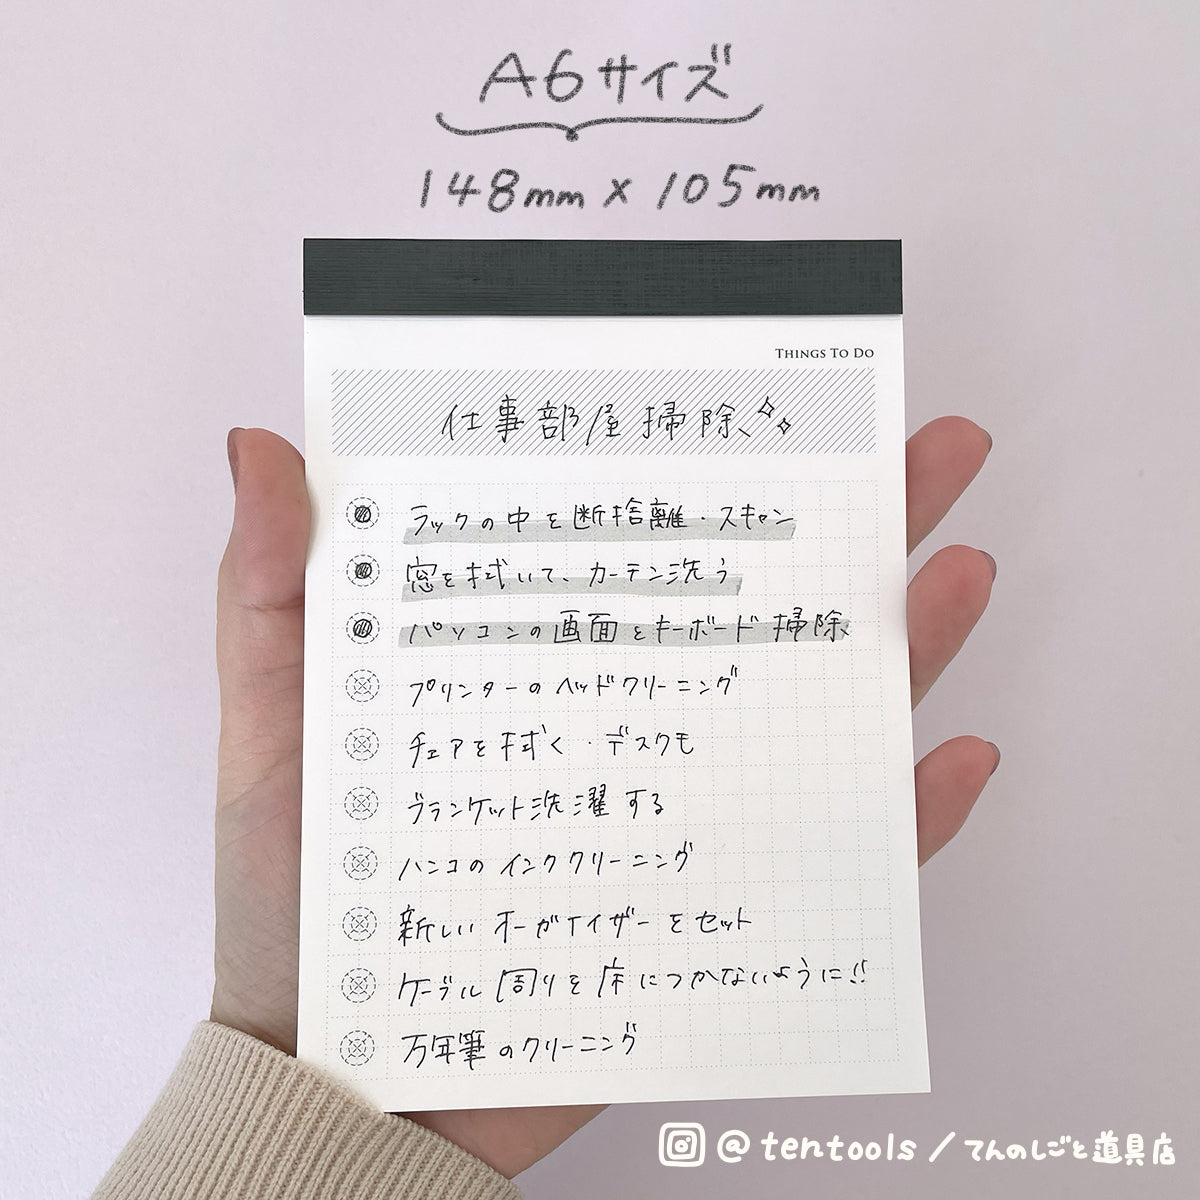 A6サイズ
148mm × 105mm
THINGS TO DO
仕事部屋掃除
ラックの中を断捨離・スキャン
窓を拭いて、カーテン洗う
パソコンの画面とキーボード掃除
プリンターのヘッドクリーニング
チェアを拭く・デスクモ
ブランケット洗濯する
ハンコのインククリーニング
新しいオーガナイザーをセット
ケーブル周りを床につかないように!!
万年筆のクリーニング
@tentools/てんのしごと道具店